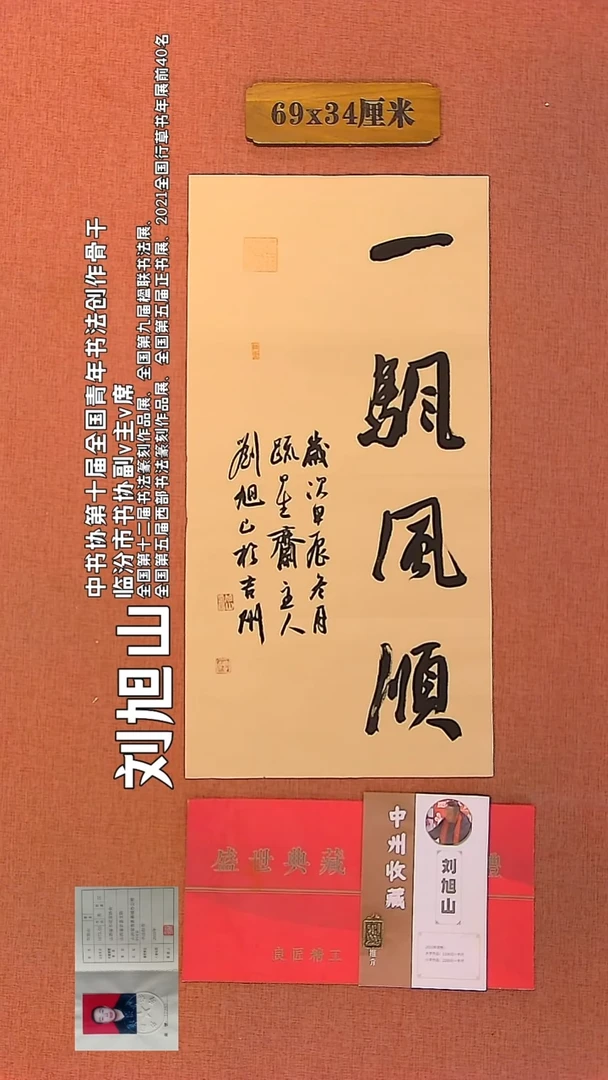 69x34厘米
一
颿
風
順
歲次甲辰冬月
疏星齋主人
劉旭山於吉州
中书协第十届全国青年书法创作骨干
临汾市书协副v主v席
全国第十二届书法篆刻作品展、全国第九届楹联书法展、
全国第五届西部书法篆刻作品展、全国第五届正书展、2021全国行草书年展前40名
刘旭山
盛世典藏
良匠精工
中州收藏
推介
刘旭山
禮